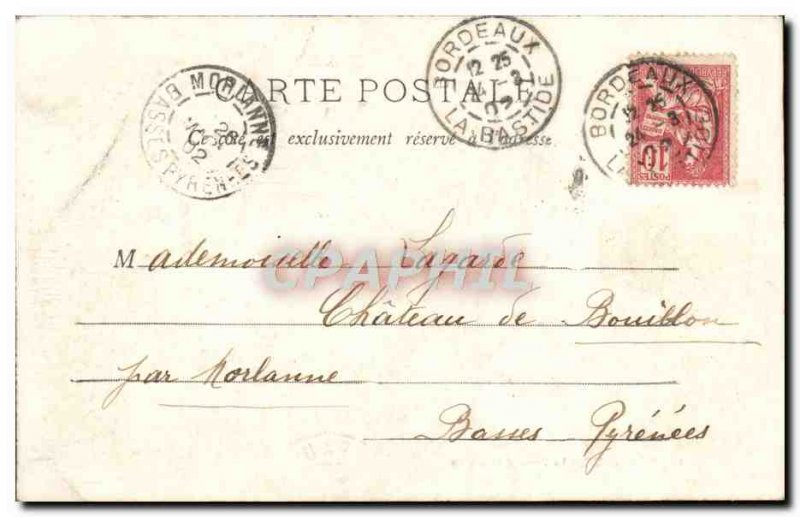 CARTE POSTALE
Ce côté est exclusivement réservé à l'adresse.
MORLANNE
BASSES PYRÉNÉES
02
BORDEAUX
12 25
LA BASTIDE
BORDEAUX
12 25
24
POSTES
10
Mademoiselle Lagarde
CPAPHIL
Château de Bouillon
par Morlanne
Basses Pyrénées